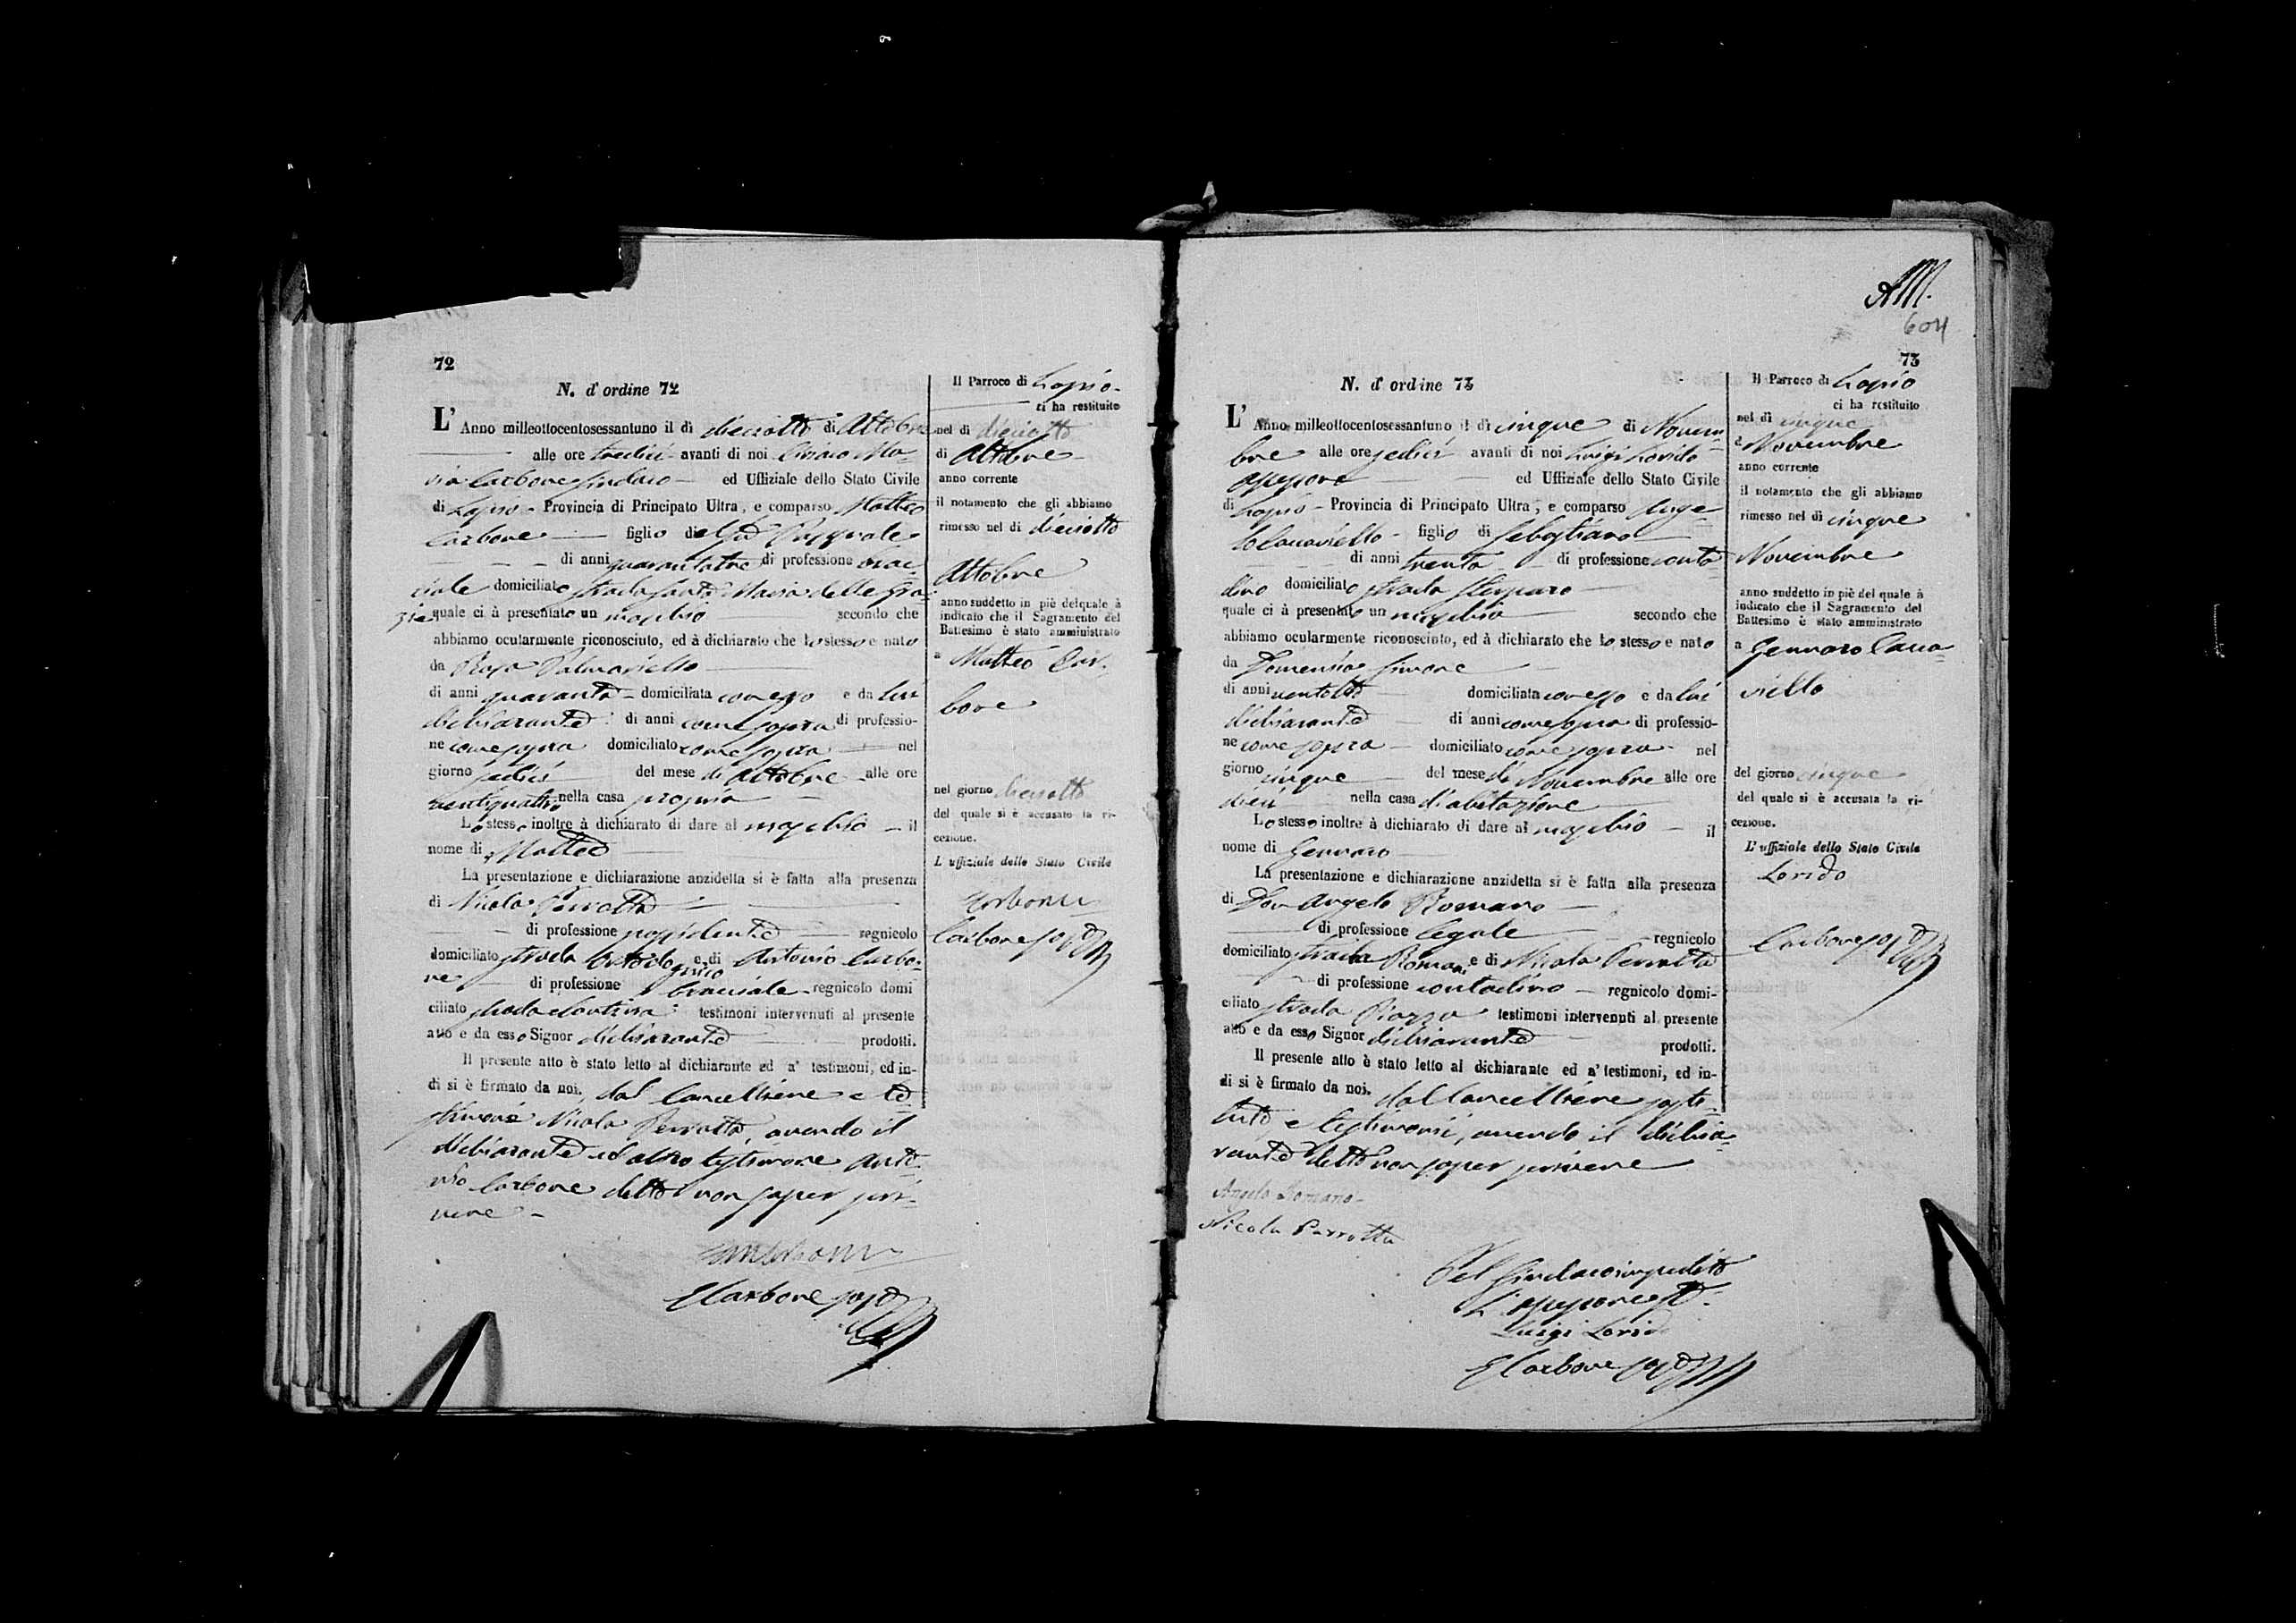 72
N. d'ordine 72
L'Anno milleottocentosessantuno il di dieciotto di Ottobre
alle ore tredici avanti di noi Ciriaco Ma-
ria Carbone Sindaco ed Uffiziale dello Stato Civile
di Lapio Provincia di Principato Ultra, e comparso Matteo
Carbone figlio del fu Pasquale
di anni quarantatre di professione brac-
ciale domiciliato strada Santa Maria delle Gra-
zie quale ci à presentato un maschio secondo che
abbiamo ocularmente riconosciuto, ed à dichiarato che lo stesso e nato
da Rosa
di anni quaranta domiciliata con esso e da lui
dichiarante di anni come sopra di professio-
ne come sopra domiciliato come sopra nel
giorno sedici del mese di Ottobre alle ore
ventiquattro nella casa propria
Lo stesso inoltre à dichiarato di dare al maschio il
nome di Matteo
La presentazione e dichiarazione anzidetta si è fatta alla presenza
di Nicola Perrotta
di professione possidente regnicolo
domiciliato strada e di Antonio Carbo-
ne di professione bracciale regnicolo domi
ciliato strada testimoni intervenuti al presente
atto e da esso Signor dichiarante prodotti.
Il presente atto è stato letto al dichiarante ed a' testimoni, ed in-
di si è firmato da noi, dal Cancelliere e te-
stimone Nicola Perrotta, avendo il
dichiarante ed altro testimone Anto-
nio Carbone detto non saper scri-
vere
Carbone
Il Parroco di Lapio
ci ha restituito
nel di dieciotto
di Ottobre
anno corrente
il notamento che gli abbiamo
rimesso nel di dieciotto
Ottobre
anno suddetto in piè del quale à
indicato che il Sagramento del
Battesimo è stato amministrato
a Matteo Car-
bone
nel giorno dieciotto
del quale si è accusato la ri-
cezione.
L'uffiziale dello Stato Civile
Carbone
AM.
604
73
N. d'ordine 73
L'Anno milleottocentosessantuno il di cinque di Novem-
bre alle ore sedici avanti di noi Luigi Lorido
ed Uffiziale dello Stato Civile
di Lapio Provincia di Principato Ultra, e comparso Ange-
lo Caccaviello figlio di Sebastiano
di anni trenta di professione conta-
dino domiciliato strada
quale ci à presentato un maschio secondo che
abbiamo ocularmente riconosciuto, ed à dichiarato che lo stesso e nato
da Domenica Simone
di anni ventotto domiciliata con esso e da lui
dichiarante di anni come sopra di professio-
ne come sopra domiciliato come sopra nel
giorno cinque del mese di Novembre alle ore
dieci nella casa di abitazione
Lo stesso inoltre à dichiarato di dare al maschio il
nome di Gennaro
La presentazione e dichiarazione anzidetta si è fatta alla presenza
di Don Angelo Romano
di professione legale regnicolo
domiciliato strada Romani e di Nicola Perrotta
di professione contadino regnicolo domi-
ciliato strada Piazza testimoni intervenuti al presente
atto e da esso Signor dichiarante prodotti.
Il presente atto è stato letto al dichiarante ed a' testimoni, ed in-
di si è firmato da noi. dal Cancelliere sosti-
tuto e testimoni, avendo il dichia-
rante detto non saper scrivere
Angelo Romano
Nicola Perrotta
Pel Sindaco impedito
Luigi Lorido
Carbone
Il Parroco di Lapio
ci ha restituito
nel di cinque
Novembre
anno corrente
il notamento che gli abbiamo
rimesso nel di cinque
Novembre
anno suddetto in piè del quale à
indicato che il Sagramento del
Battesimo è stato amministrato
a Gennaro Cacca-
viello
del giorno cinque
del quale si è accusata la ri-
cezione.
L'uffiziale dello Stato Civile
Lorido
Carbone